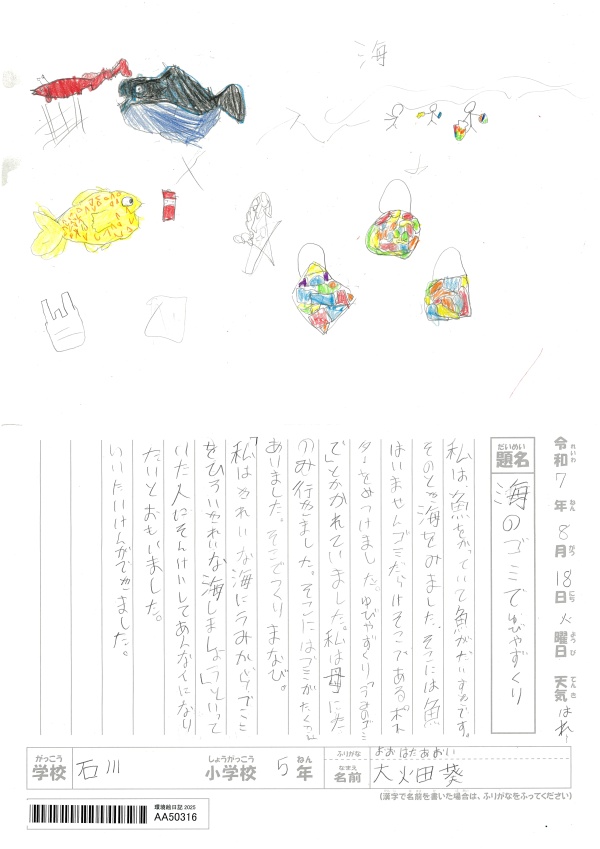 海
令和7年8月18日火曜日 天気はれー
れいわ ねん がつ にち ようび てんき
だいめい
題名
海のゴミでゆびやずくり
私は魚をかっていて魚がだいすきです。
そのとき海をみました。そこには魚
はいませんゴミだらけそこであるポス
ターをめつけました。ゆびやずくり「うみのゴミ
で」とかかれていました。私は母にた
のみ行きました。そこにはゴミがたくさん
ありました。そこでつくりまなび。
「私はきれいな海にうみからゴミ
をひろいきれいな海しましょう」といって
いた人にそんけいしてあんな人になり
たいとおもいました。
いいたいけんができました。
がっこう
学校
石川
しょうがっこう
小学校
5
ねん
年
ふりがな
おおはたあおい
なまえ
名前
大火田葵
(漢字で名前を書いた場合は、ふりがなをふってください)
環境絵日記 2025
AA50316